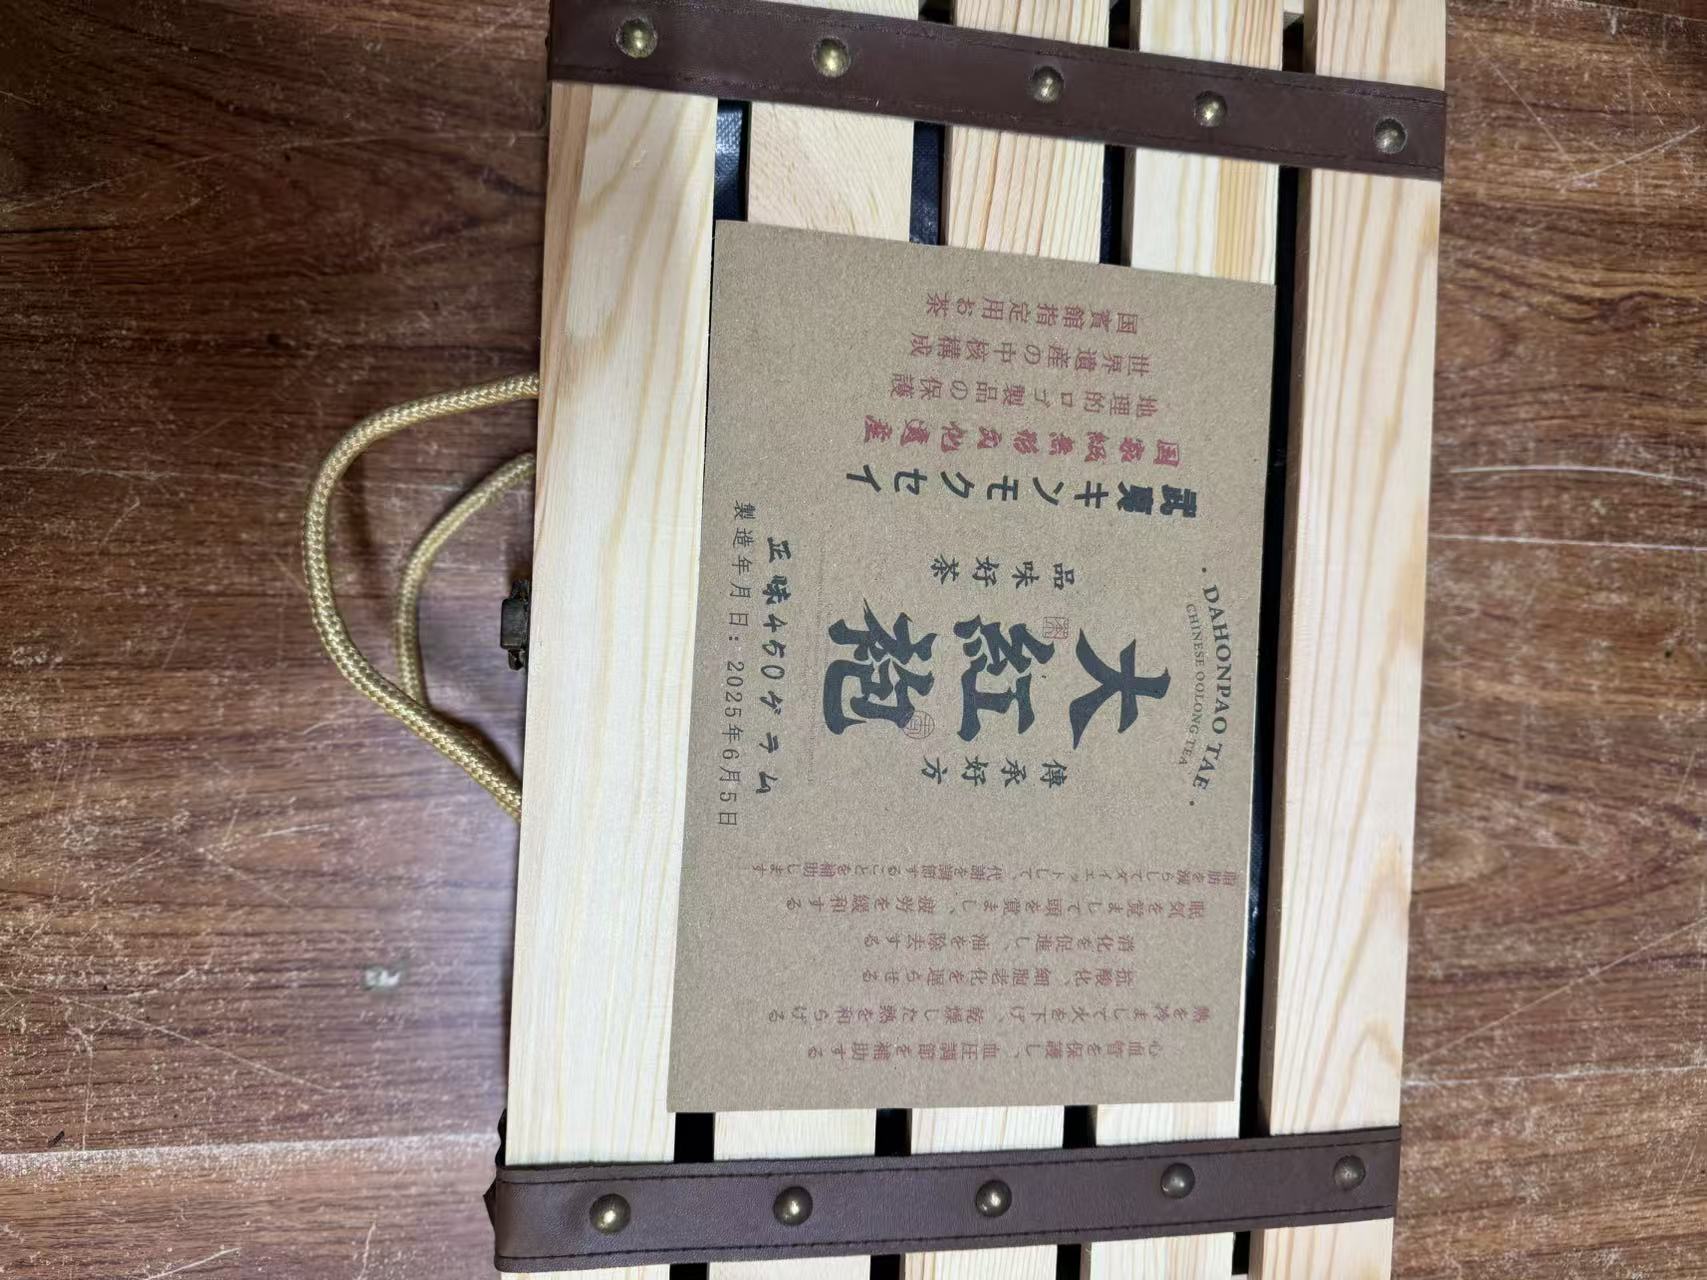 · DAHONPAO TAE ·
CHINESE OOLONG TEA
心血管を保護し、血圧調節を補助する
熱を冷まして火を下げ、乾燥した熱を和らげる
抗酸化、細胞老化を遅らせる
消化を促進し、油を除去する
眠気を覚まして頭を覚まし、疲労を緩和する
脂肪を減らしてダイエットして、代謝を調節することを補助します
傳承好方
大紅袍
品味好茶
武夷キンモクセイ
国家級無形文化遺産
地理的ロゴ製品の保護
世界遺産の中核構成
国賓館指定用お茶
正味450グラム
製造年月日：2025年6月5日